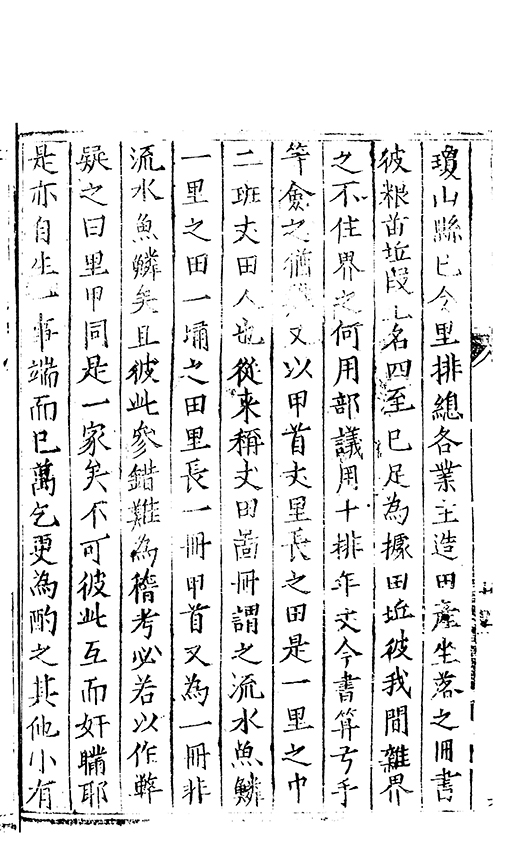 瓊山縣已令里排總各業主造田產坐落之冊書
彼粮苗坵段土名四至已足為據田坵彼我間雜界
之不住界之何用部議用十排年丈今書筭弓手
等僉之猶又以甲首丈里長之田是一里之中
二班丈田人也從来稱丈田啚冊謂之流水魚鱗
一里之田一塥之田里長一冊甲首又為一冊非
流水魚鱗矣且彼此參錯難為稽考必若以作弊
疑之曰里甲同是一家矣不可彼此互而奸瞞耶
是亦自生一事端而已萬乞更為酌之其他小有